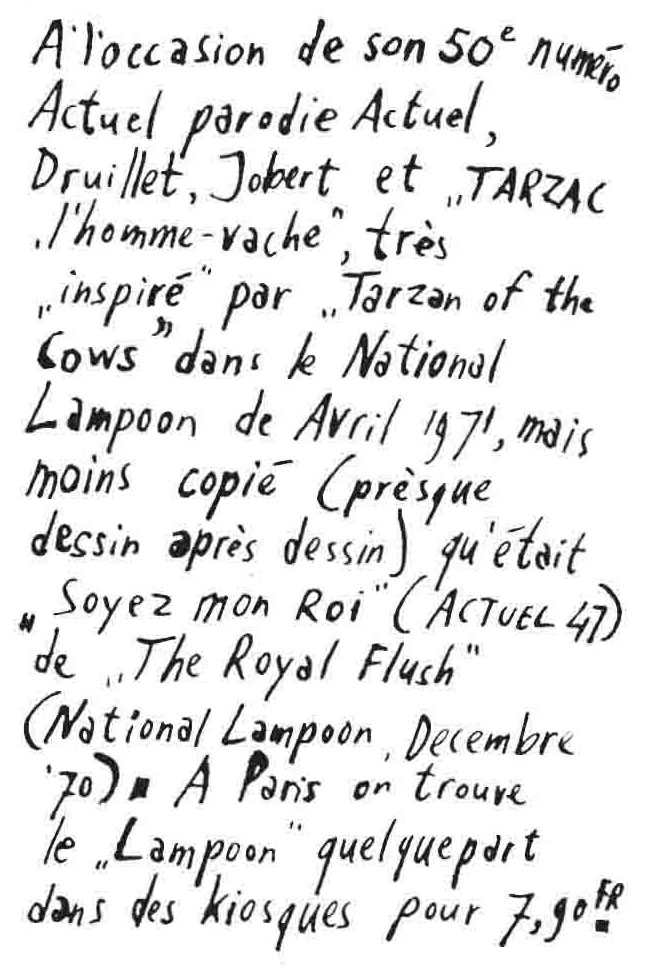 A l'occasion de son 50e numéro
Actuel parodie Actuel,
Druillet, Jobert et „TARZAC
l'homme-vache", très
„inspiré" par „Tarzan of the
Cows" dans le National
Lampoon de Avril 1971, mais
moins copié (prèsque
dessin après dessin) qu'était
„Soyez mon Roi" (ACTUEL 47)
de „The Royal Flush"
(National Lampoon, Decembre
'70)▪ A Paris on trouve
le „Lampoon" quelquepart
dans des kiosques pour 7,90 FR